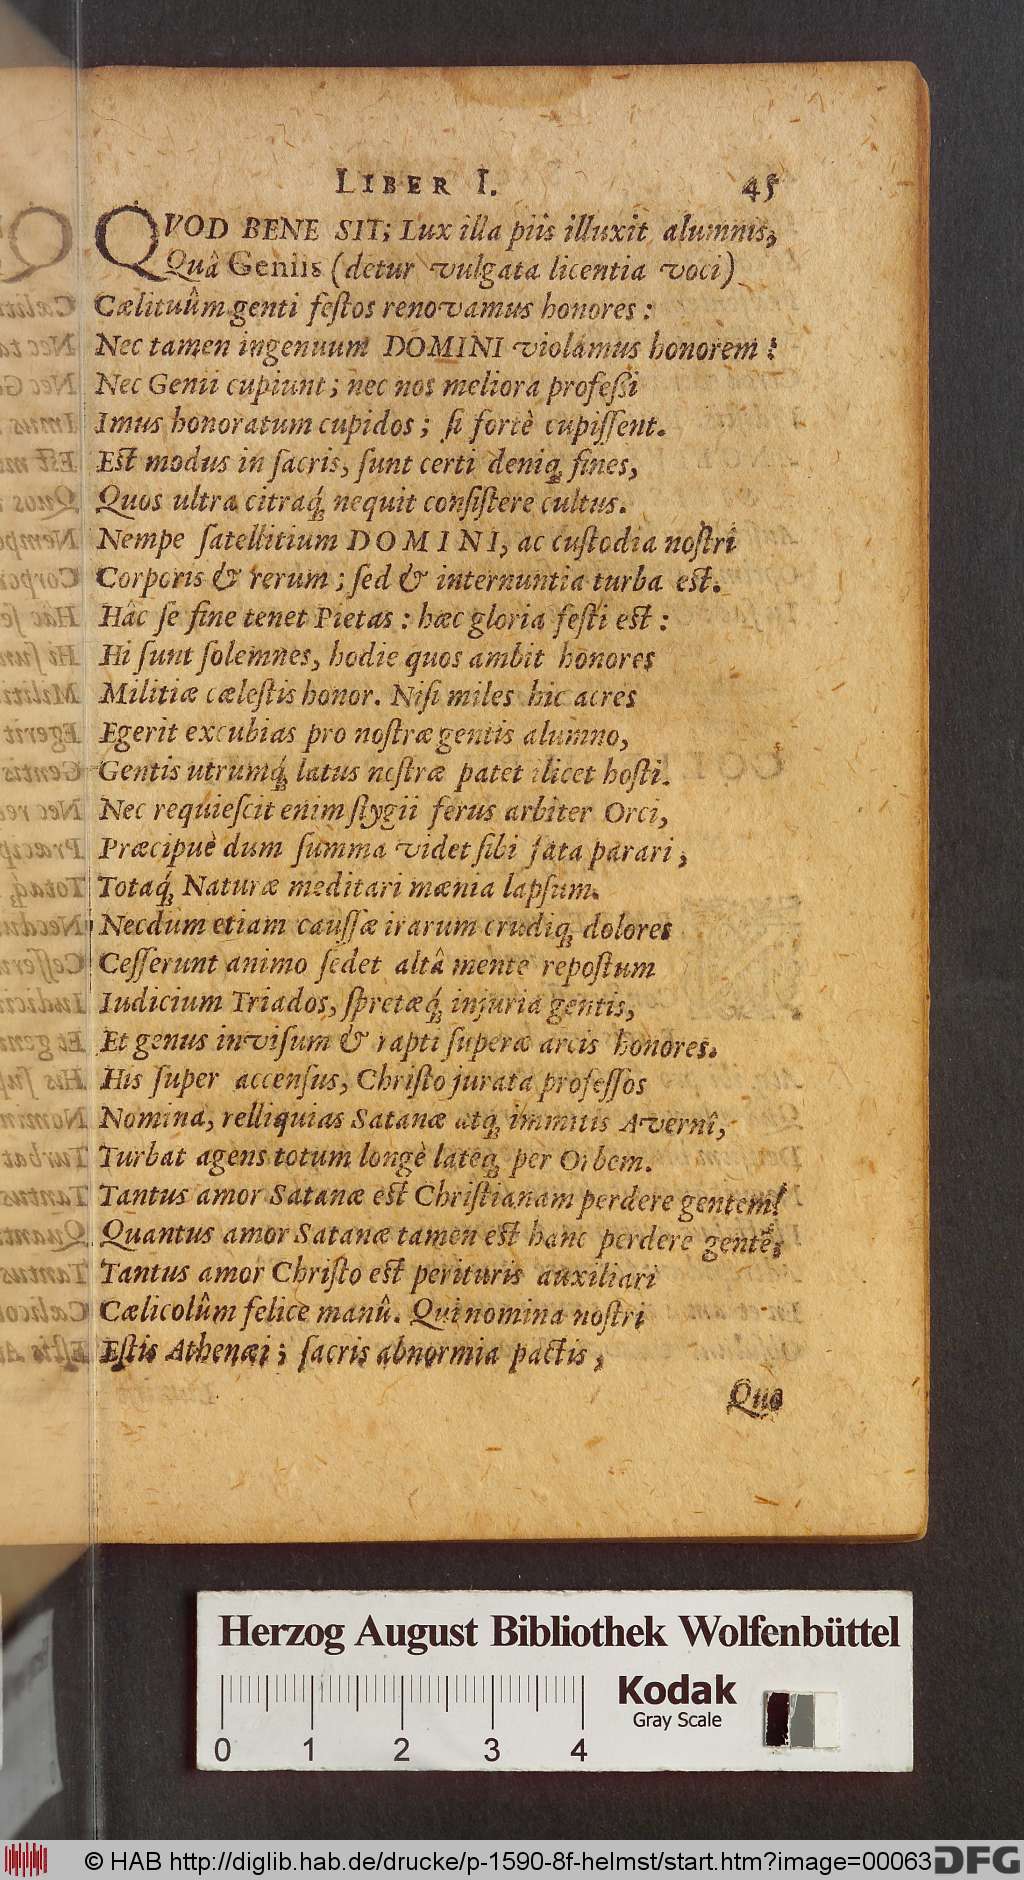 LIBER I. 45
QVOD BENE SIT; Lux illa piis illuxit alumnis,
Quâ Geniis (detur vulgata licentia voci)
Cælituûm genti festos renovamus honores:
Nec tamen ingenuum DOMINI violamus honorem:
Nec Genii cupiunt; nec nos meliora professi
Imus honoratum cupidos; si fortè cupissent.
Est modus in sacris, sunt certi deniq; fines,
Quos ultra citraq́; nequit consistere cultus.
Nempe satellitium DOMINI, ac custodia nostri
Corporis & rerum; sed & internuntia turba est.
Hâc se fine tenet Pietas: hæc gloria festi est:
Hi sunt solemnes, hodie quos ambit honores
Militiæ cælestis honor. Nisi miles hic acres
Egerit excubias pro nostræ gentis alumno,
Gentis utrumq́; latus nostræ patet ilicet hosti.
Nec requiescit enim stygii ferus arbiter Orci,
Præcipuè dum summa videt sibi fata parari,
Totaq́; Naturæ meditari mænia lapsum.
Necdum etiam caussæ irarum crudiq; dolores
Cesserunt animo sedet altâ mente repostum
Iudicium Triados, spretæq́; injuria gentis,
Et genus invisum & rapti superæ arcis honores.
His super accensus, Christo jurata professos
Nomina, relliquias Satanæ atq; immitis Avernî,
Turbat agens totum longè lateq; per Orbem.
Tantus amor Satanæ est Christianam perdere gentem!
Quantus amor Satanæ tamen est hanc perdere gentē;
Tantus amor Christo est perituris auxiliari
Cælicolûm felice manû. Qui nomina nostri
Estis Athenæi; sacris abnormia pactis,
Quo
Herzog August Bibliothek Wolfenbüttel
Kodak
Gray Scale
0 1 2 3 4
© HAB http://diglib.hab.de/drucke/p-1590-8f-helmst/start.htm?image=00063
DFG